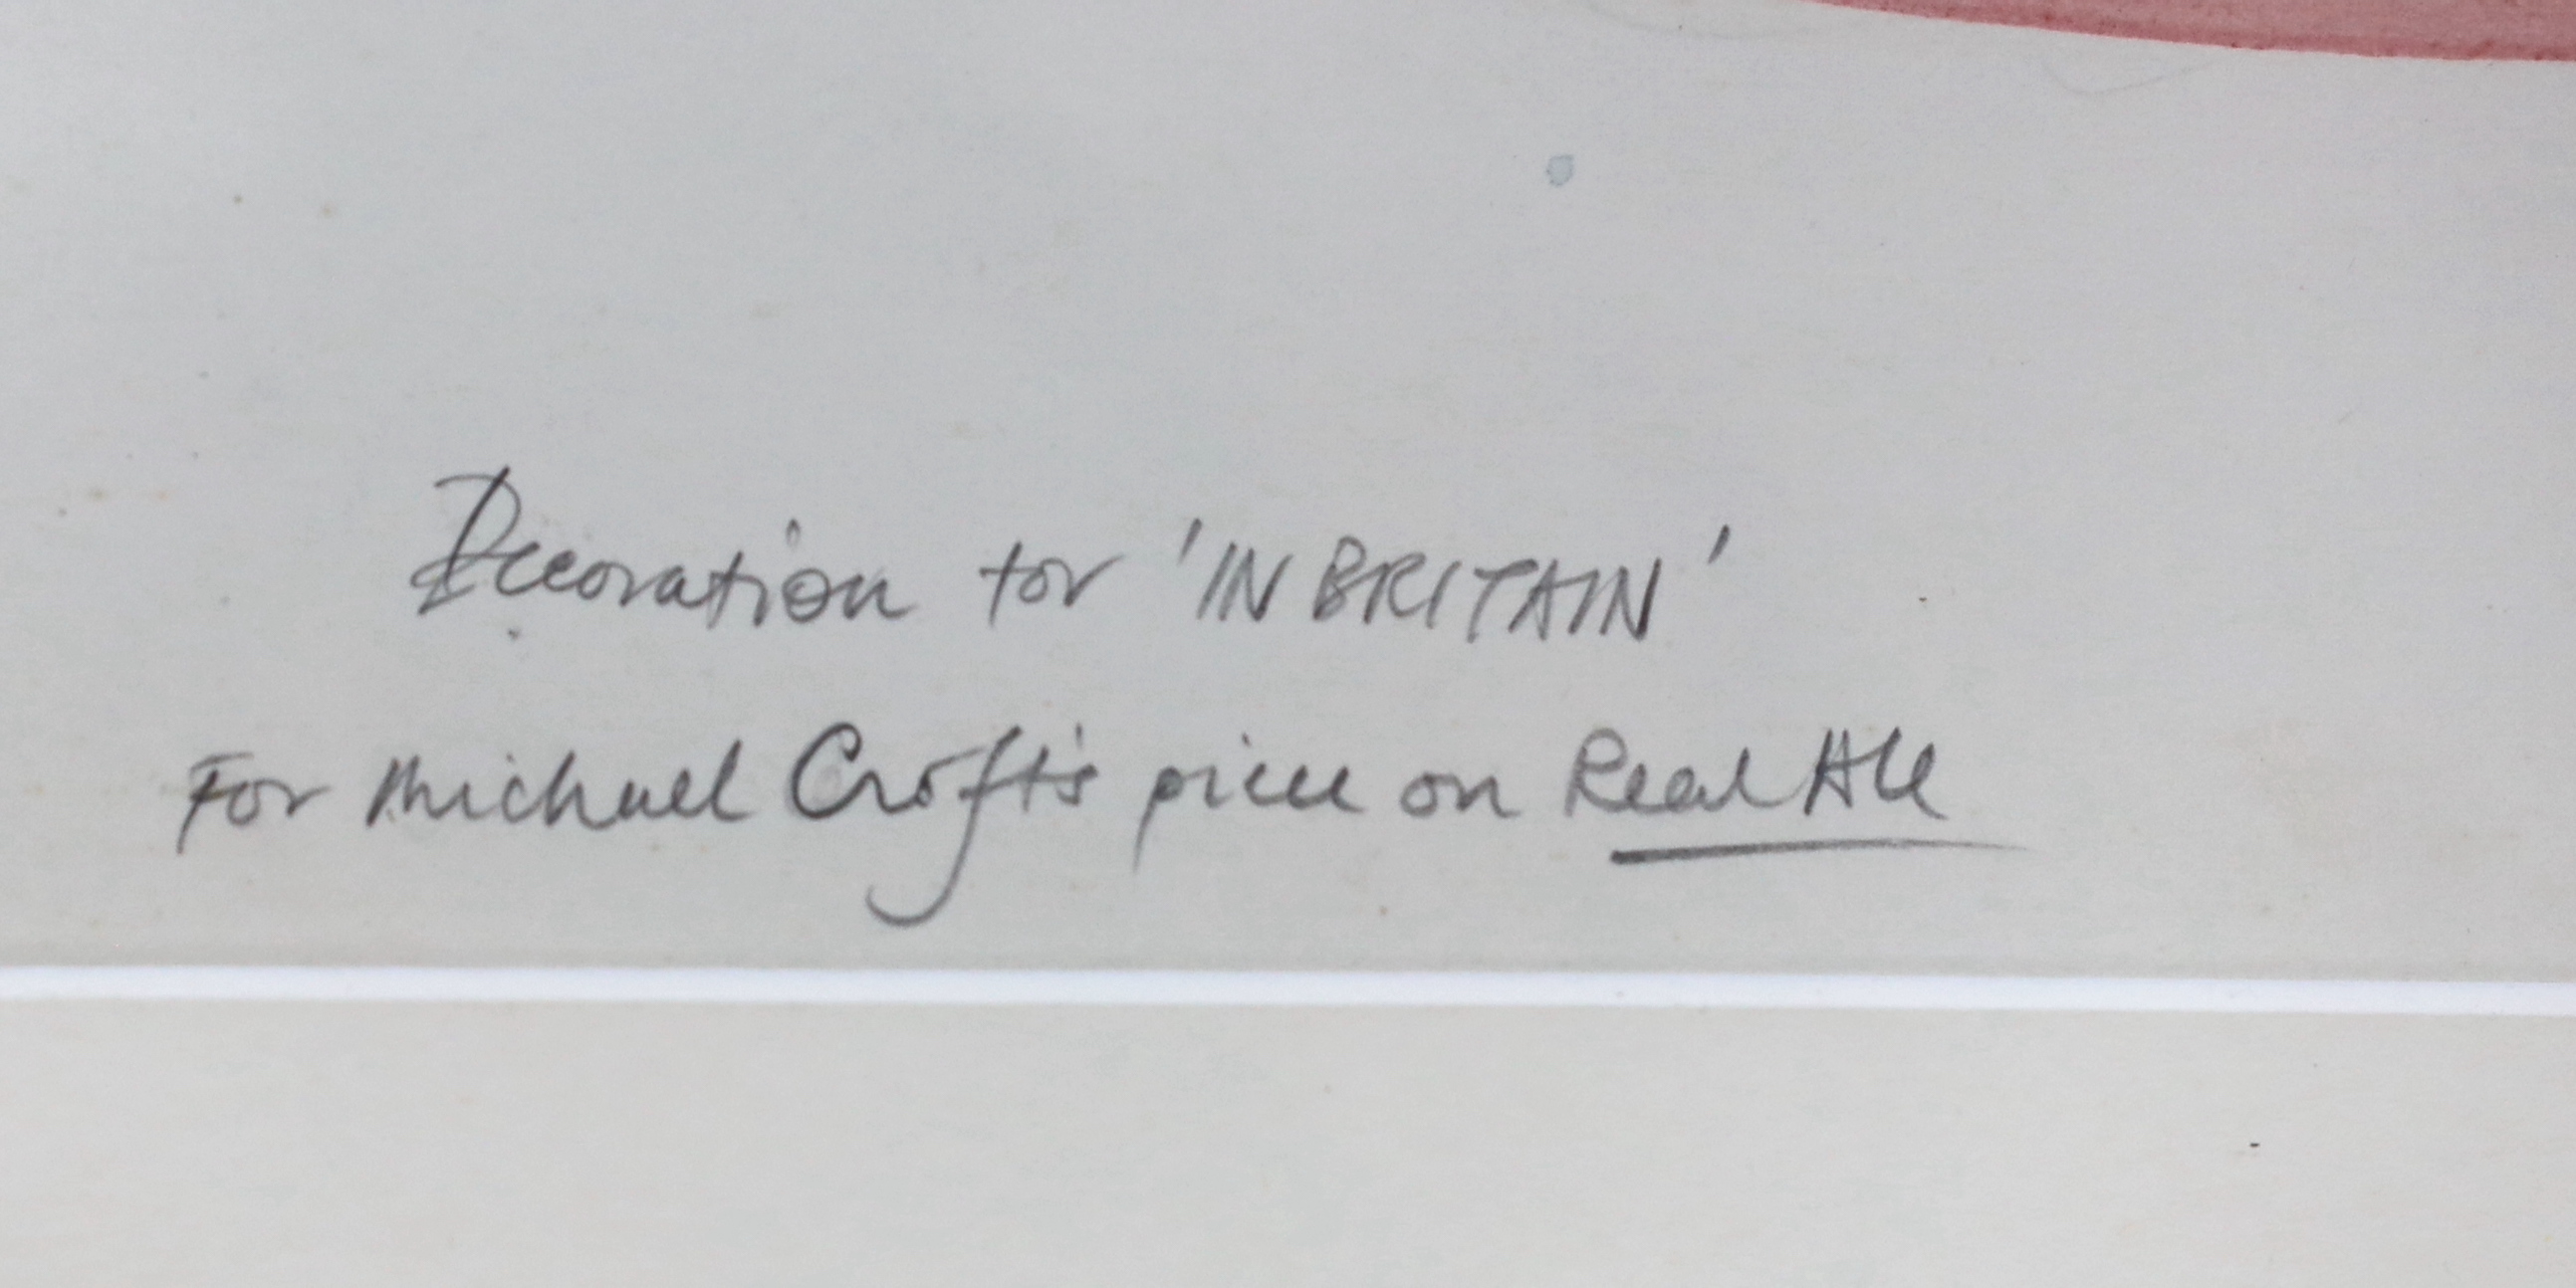 Decoration for 'IN BRITAIN'
For Michael Croft's piece on Real Ale